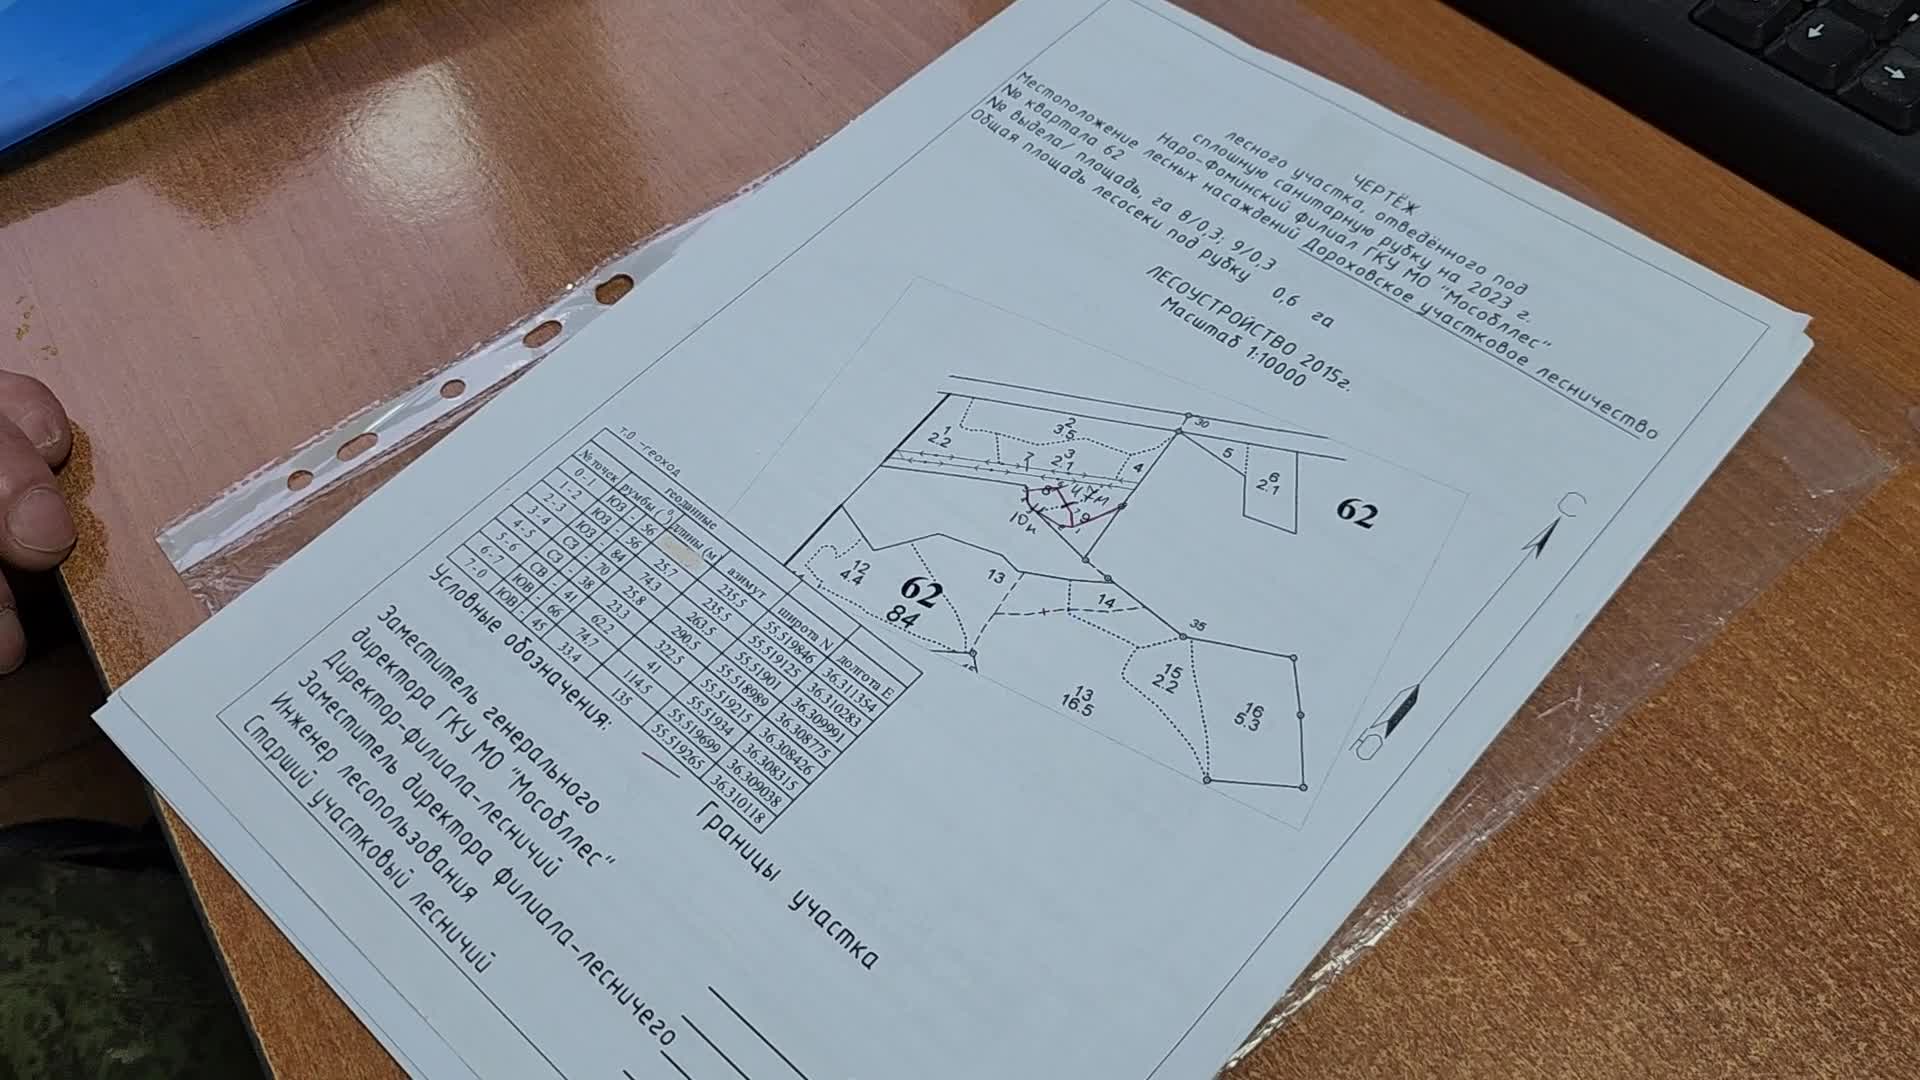 ЧЕРТЁЖ
лесного участка, отведённого под
сплошную санитарную рубку на 2023 г.
Наро-Фоминский филиал ГКУ МО "Мособллес"
Местоположение лесных насаждений Дороховское участковое лесничество
№ квартала 62
№ выдела/ площадь, га 8/0,3; 9/0,3
Общая площадь лесосеки под рубку 0,6 га
ЛЕСОУСТРОЙСТВО 2015г.
Масштаб 1:10000
30
2
3.5
1
2.2
3
2.1
7
4
5
6
2.1
62
47м
8
9
10
С
Ю
12
4.4
62
84
13
14
35
15
2.2
16
5.3
13
16.5
т.0 -геоход
геоданные
№ точек румбы (°) длины (м азимут широта N долгота E
0-1 ЮЗ - 56 235.5 55.519846 36.311354
1-2 ЮЗ - 56 25.7 235.5 55.519125 36.310283
2-3 ЮЗ - 84 74.3 263.5 55.51901 36.309991
3-4 СЗ - 70 25.8 290.5 55.518989 36.308775
4-5 СЗ - 38 23.3 322.5 55.519215 36.308426
5-6 СВ - 41 62.2 41 55.51934 36.308315
6-7 ЮВ - 66 74.7 114.5 55.519699 36.309038
7-0 ЮВ - 45 33.4 135 55.519265 36.310118
Условные обозначения:
Границы участка
Заместитель генерального
директора ГКУ МО "Мособллес"
Директор-филиала-лесничий
Заместитель директора филиала-лесничего
Инженер лесопользования
Старший участковый лесничий